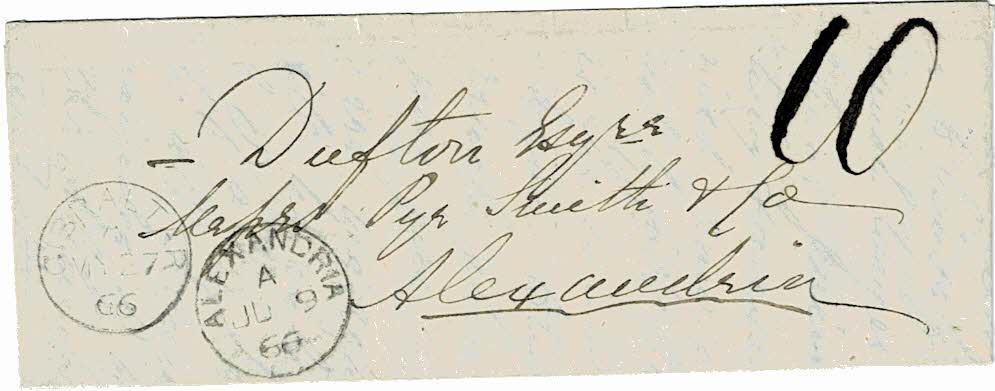 10
— Dufton Esqre
Messrs Pye Smith & Co
Alexandria
GIBRALTAR
MY 27
66
ALEXANDRIA
A
JU 9
66